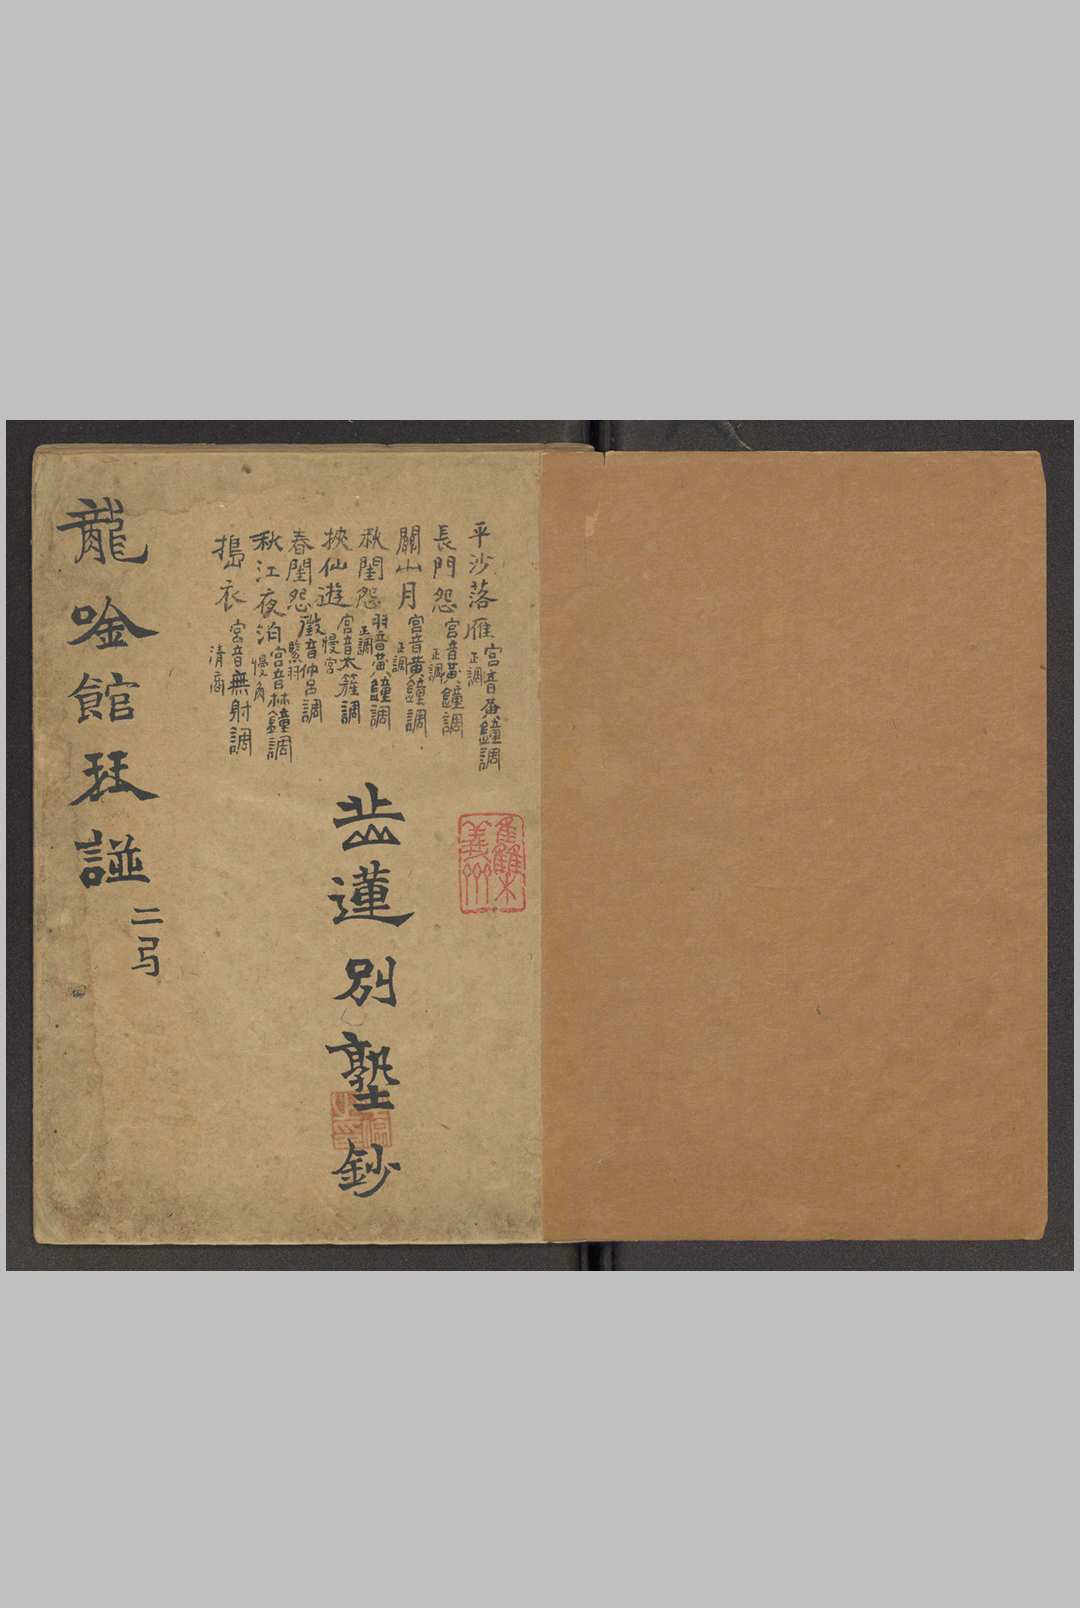 平沙落雁 宮音黃鐘調 正調
長門怨 宮音黃鐘調 正調
關山月 宮音黃鐘調 正調
秋閨怨 羽音黃鐘調 正調
挾仙遊 宮音太簇調 慢宮
春閨怨 徵音仲呂調 緊羽
秋江夜泊 宮音林鐘調 慢角
搗衣 宮音無射調 清商
蓮別塾鈔
龍唫館琹譜
二弓